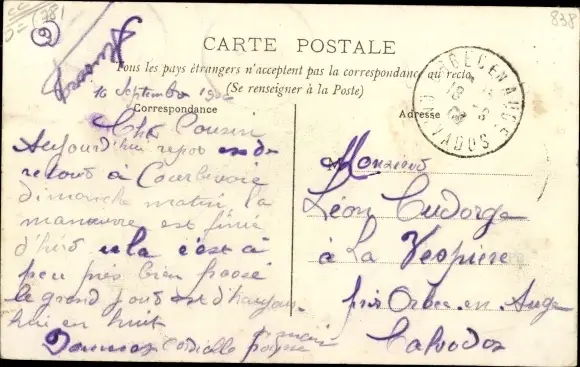 838
(78)
CARTE POSTALE
Tous les pays étrangers n'acceptent pas la correspondance au recto
(Se renseigner à la Poste)
Correspondance
Adresse
16 Septembre
Cher Cousin
Aujourd'hui repos
retour à Courbevoie
dimanche matin la
manœuvre est finie
d'hier c'est à
peu près bien passé
le grand jour est d'haujour
hui en huit
Cordialle
Monsieur
Léon Cudorge
à La Vespière
près Orbec en Auge
Calvados
ORBEC EN AUGE
CALVADOS